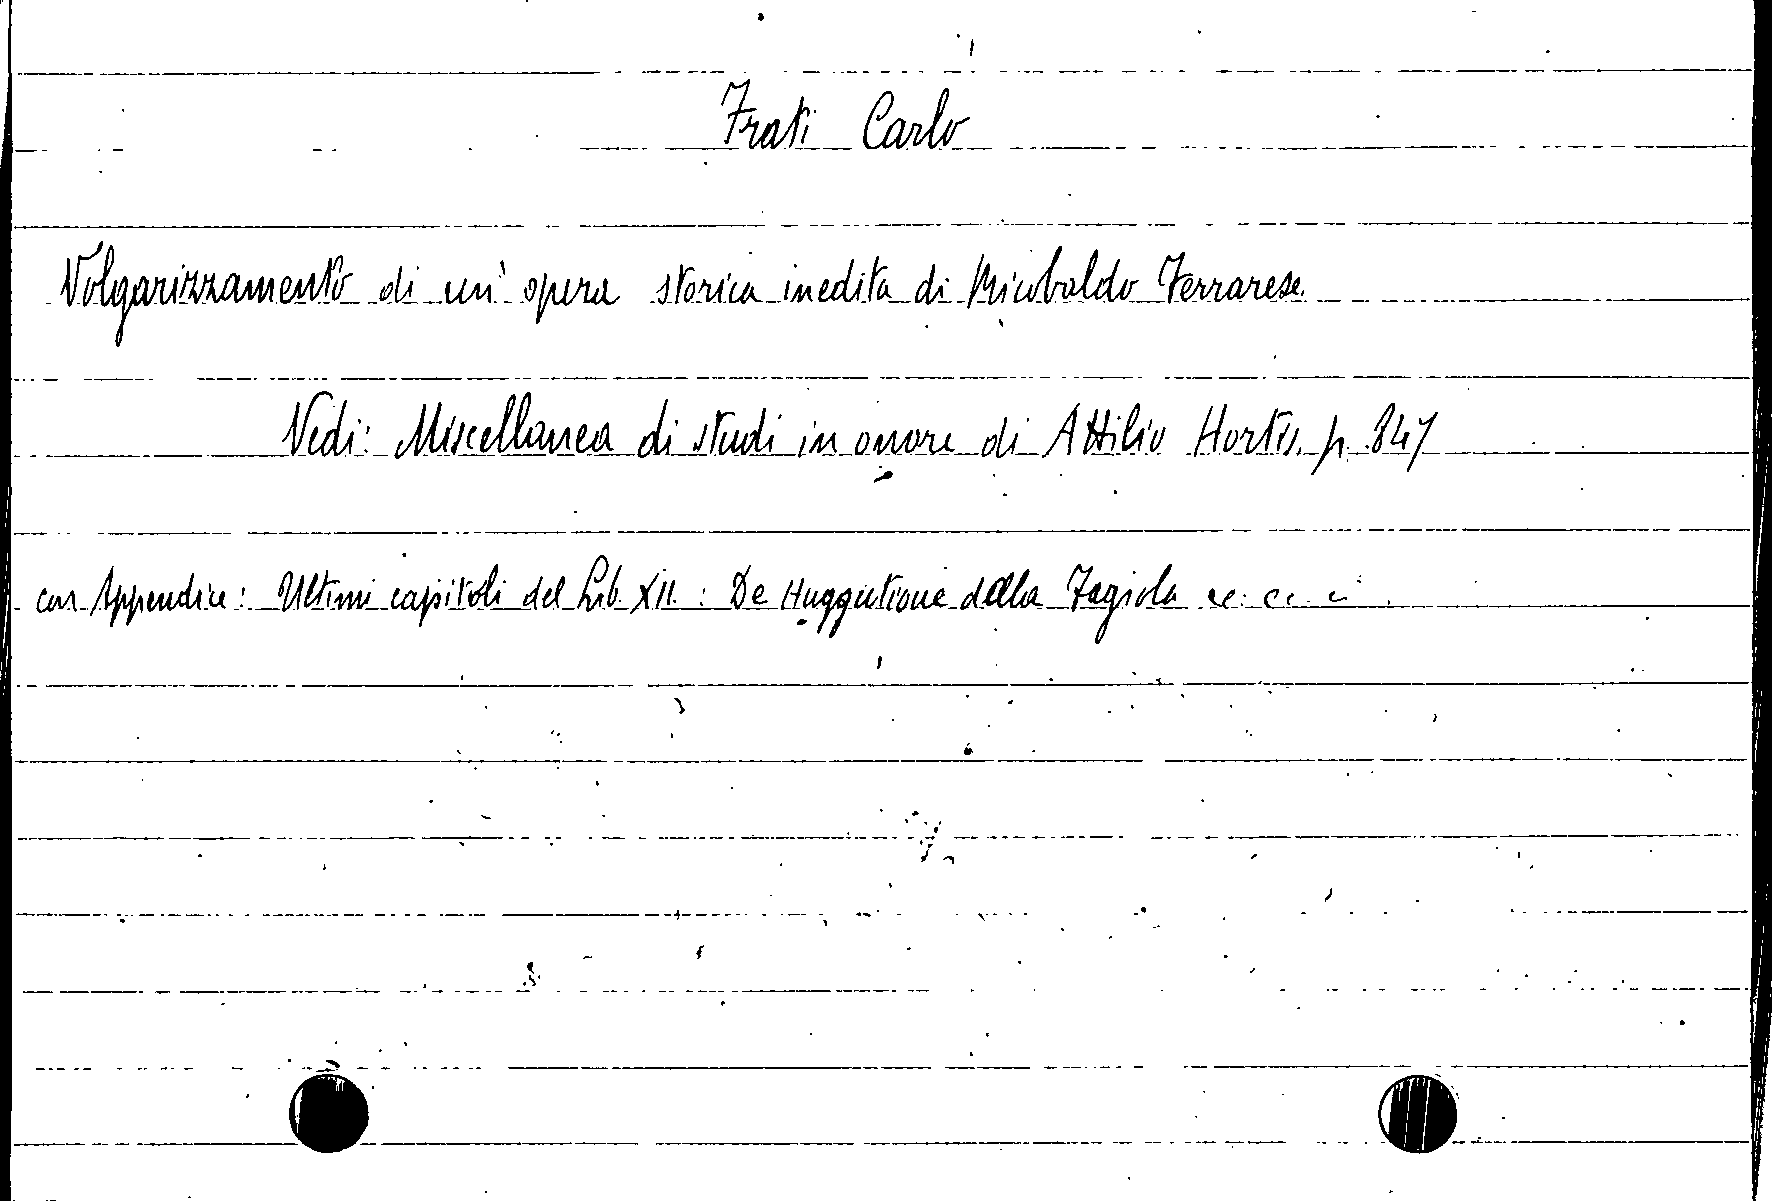 Frati Carlo
Volgarizzamento di un' opera storica inedita di Ricobaldo Ferrarese.
Vedi: Miscellanea di studi in onore di Attilio Hortis. p. 847
con Appendice: Ultimi capitoli del Lib. XII. : De Huggutione della Fagiola